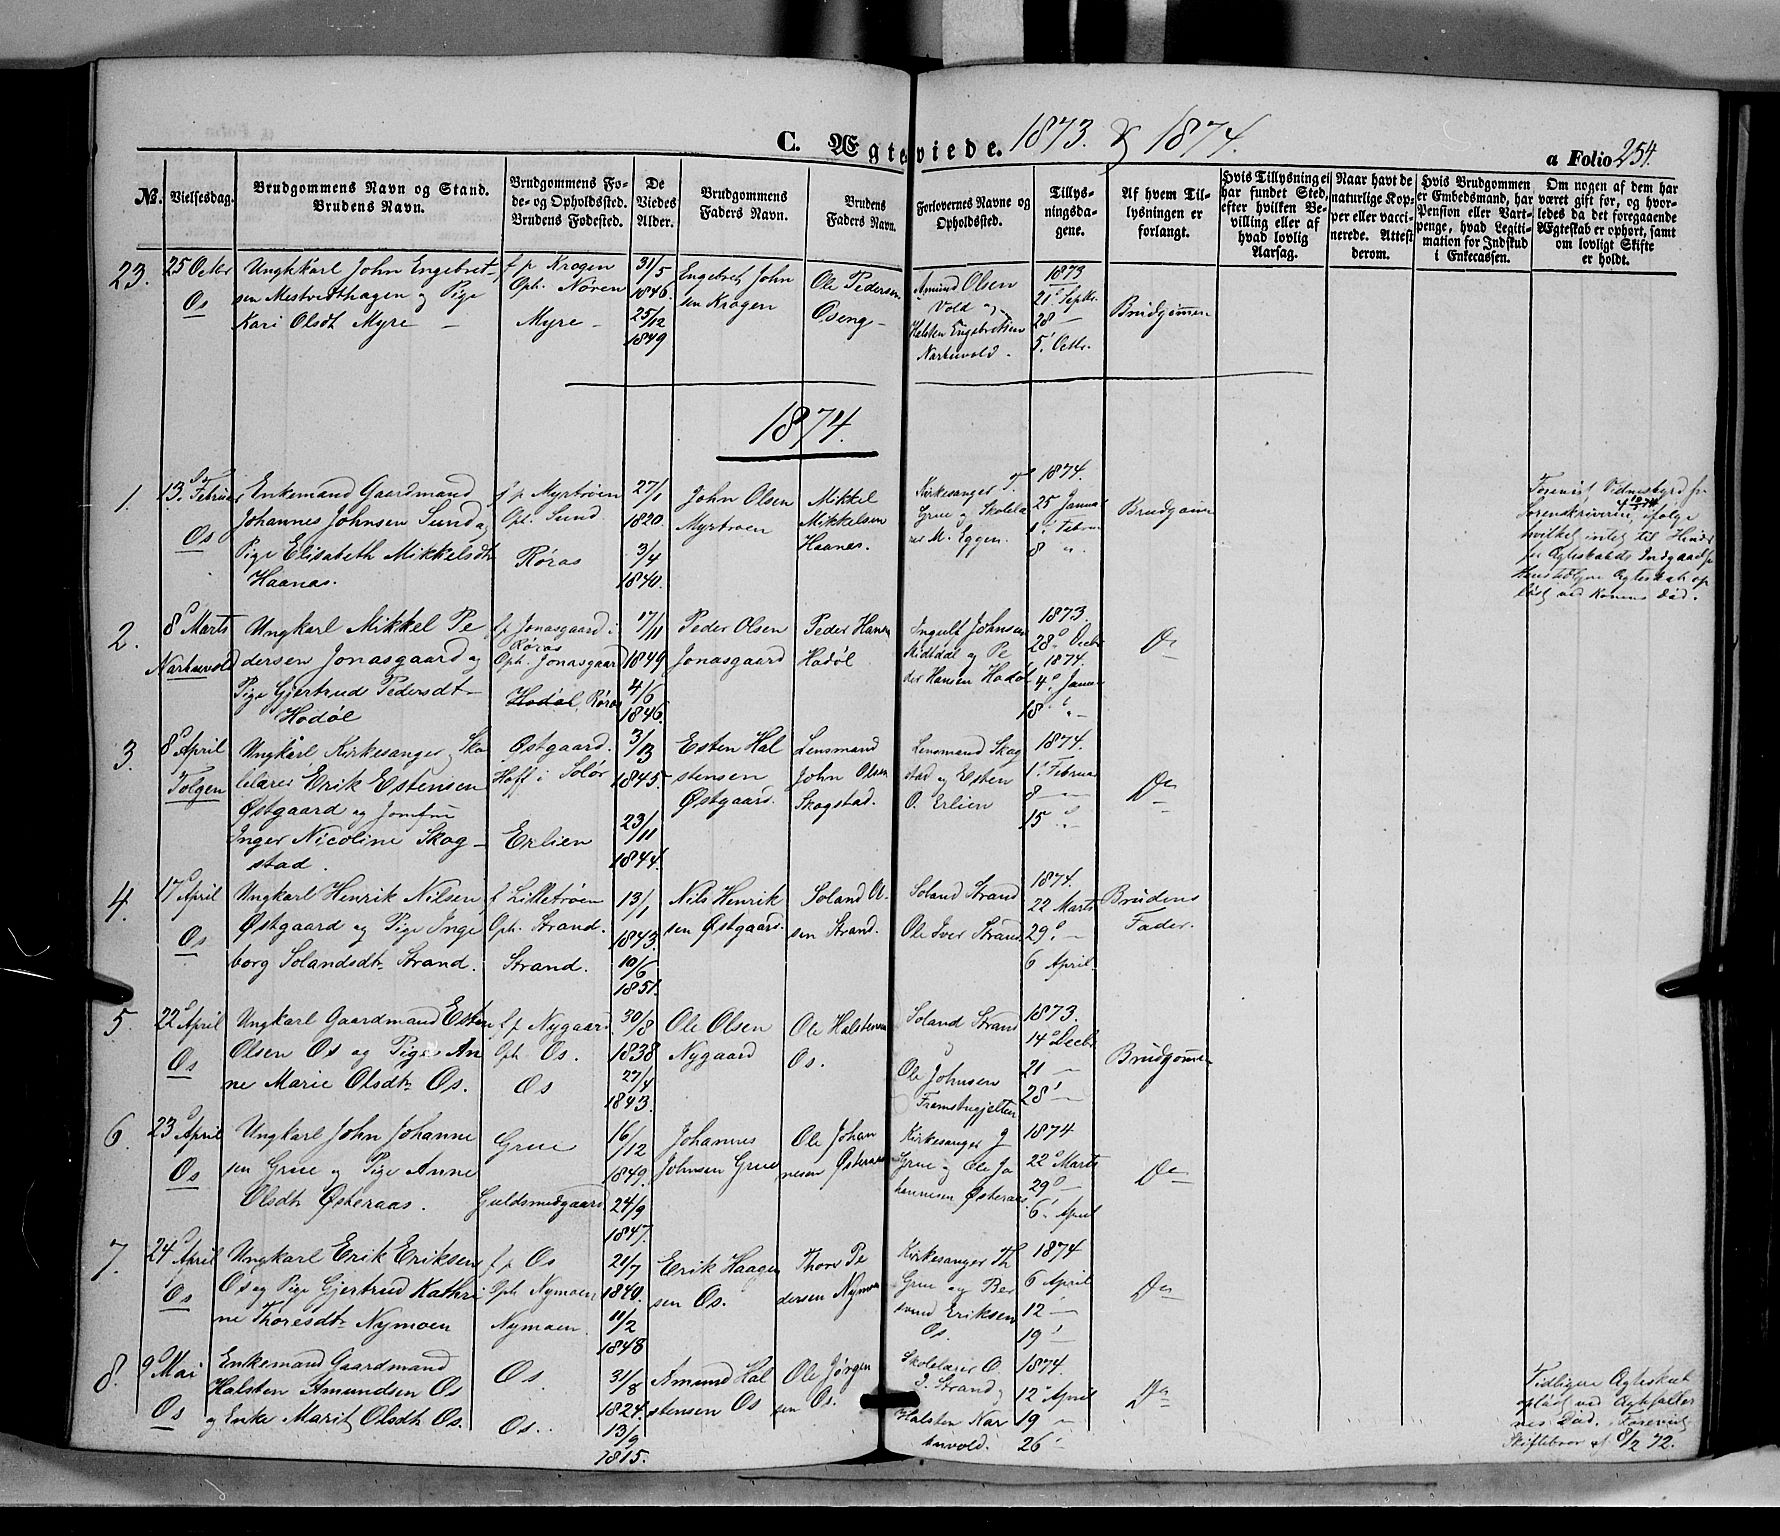 C. Ægteviede. 1873. & 1874.
a Folio 254.
No.
Vielsesdag.
Brudgommens Navn og Stand.
Brudens Navn.
Brudgommens Fø-
de- og Opholdssted.
Brudens Fødested.
De
Viedes
Alder.
Brudgommens
Faders Navn.
Brudens
Faders Navn.
Forlovernes Navne og
Opholdssted.
Tillys-
ningsda-
gene.
Af hvem Til-
lysningen er
forlangt.
Hvis Tillysning ei
har fundet Sted,
efter hvilken Be-
villing eller af
hvad lovlig
Aarsag.
Naar havt de
naturlige Kop-
per eller vacci-
nerede. Attest
derom.
Hvis Brudgommen
er Embedsmand, har
Pension eller Vart-
penge, hvad Legiti-
mation for Indskud
i Enkecassen.
Om nogen af dem har
været gift før, og hvor-
ledes da det foregaaende
Ægteskab er ophørt, samt
om lovligt Skifte
er holdt.
23.
25 Octbr
Os
Ungkarl John Engebret-
sen Mestvedthagen og Pige
Kari Olsdt Myre -
f p Krogen
Oph. Nøren
Myre -
31/5
1846.
25/12
1849
Engebret John
sen Krogen
Ole Pedersen
Oseng -
Amund Olsen
Vold og
Halsten Engebretsen
Narbuvold.
1873
21 Septbr.
28 -
5. Octbr.
Brudgommen
1874.
1.
13. Februar
Os
Enkemand Gaardmand
Johannes Johnsen Sund og
Pige Elisabeth Mikkelsdtr
Haanes.
f p Myrtrøen
Oph. Sund.
Røras
27/1
1820.
3/4
1840.
John Olsen
Myrtrøen
Mikkel
Mikkelsen
Haanes.
Kirkesanger T.
Grue og Skolelæ
rer M. Eggen.
1874.
25 Januar
1. Februar
8 "
Brudgommen
Forevist Vidnesbyrd fra
Sorenskriveren, ifølge
hvilket intet til Hinder
for Ægteskabets Indgaaelse
Ægteskab op
løst ved Konens Død.
2.
8 Marts
Narbuvold
Ungkarl Mikkel Pe
dersen Jonasgaard og
Pige Gjertrud Pedersdt-
Hodøl
f p Jonasgaard i
Røras
Oph. Jonasgaard
Hodøl, Røras
17/11
1849
4/6
1846.
Peder Olsen
Jonasgaard
Peder Hansen
Hodøl
Ingulf Johnsen
Midtdal og Pe
der Hansen Hodøl
1873
28 Decbr
1874.
4. Januar
18 "
Do
3.
8 April
Tolgen
Ungkarl, Kirkesanger, Sko
lelærer Erik Estensen
Østgaard og Jomfru
Inger Nicoline Skog-
stad.
Østgaard.
Hoff i Solør
Erlien
3/13
1845.
23/11
1844.
Esten Hal
stensen
Østgaard.
Lensmand
John Olsen
Skogstad.
Lensmand Skog
stad og Esten
O. Erlien
1874.
1. Februar
8 -
15 "
Do
4.
17 April
Os
Ungkarl Henrik Nilsen
Østgaard og Pige Inge
borg Solandsdtr Strand.
f Lilletrøen
Oph. Strand.
Strand.
13/1
1843.
10/6
1851.
Nils Henrik
sen Østgaard.
Soland O.
sen Strand.
Soland Strand
Ole Iver Strand
1874.
22 Marts
29 -
6 April
Brudens
Fader.
5.
22 April
Os
Ungkarl Gaardmand Esten
Olsen Os og Pige An
ne Marie Olsdtr Os.
f p Nygaard
Oph. Os.
Os
30/8
1838
27/4
1843.
Ole Olsen
Nygaard
Ole Halstensen
Os.
Soland Strand
Ole Johnsen
1873.
14 Decbr
21 -
28 -
Brudgommen
6.
23 April
Os
Ungkarl John Johanne
sen Grue og Pige Anne
Olsdtr Østeraas.
Grue
Guldsmedgaard
16/12
1849.
24/9
1847.
Johannes
Johnsen Grue
Ole Johan
nesen Østeraas
Kirkesanger J
Grue og Ole Jo
hannesen Østeraas
1874
22 Marts
29 -
6. April
Do
7.
24 April
Os
Ungkarl Erik Eriksen
Os og Pige Gjertrud Kathri
ne Thoresdtr Nymoen
f p Os
Oph. Nymoen
Nymoen.
21/7
1840.
11/2
1848
Erik Haagen
sen Os.
Thore Pe
dersen Nymoen
Kirkesanger Th
Grue og Ber
svend Eriksen
Os.
1874
6 April
12 -
19 -
Do
8.
9 Mai
Os
Enkemand Gaardmand
Halsten Amundsen Os
og Enke Marit Olsdtr Os.
Os.
Os.
31/8
1824.
13/9
1815.
Amund Hal
stensen Os
Ole Jørgen
sen Os.
Skolelærer O.
J. Strand
Halsten Nar
buvold.
1874.
12 April
19 -
26 -
Do
Tidligere Ægteskab
opløst ved Ægtefæller
nes Død. Forevist
Skiftebrev af 8/2 72.